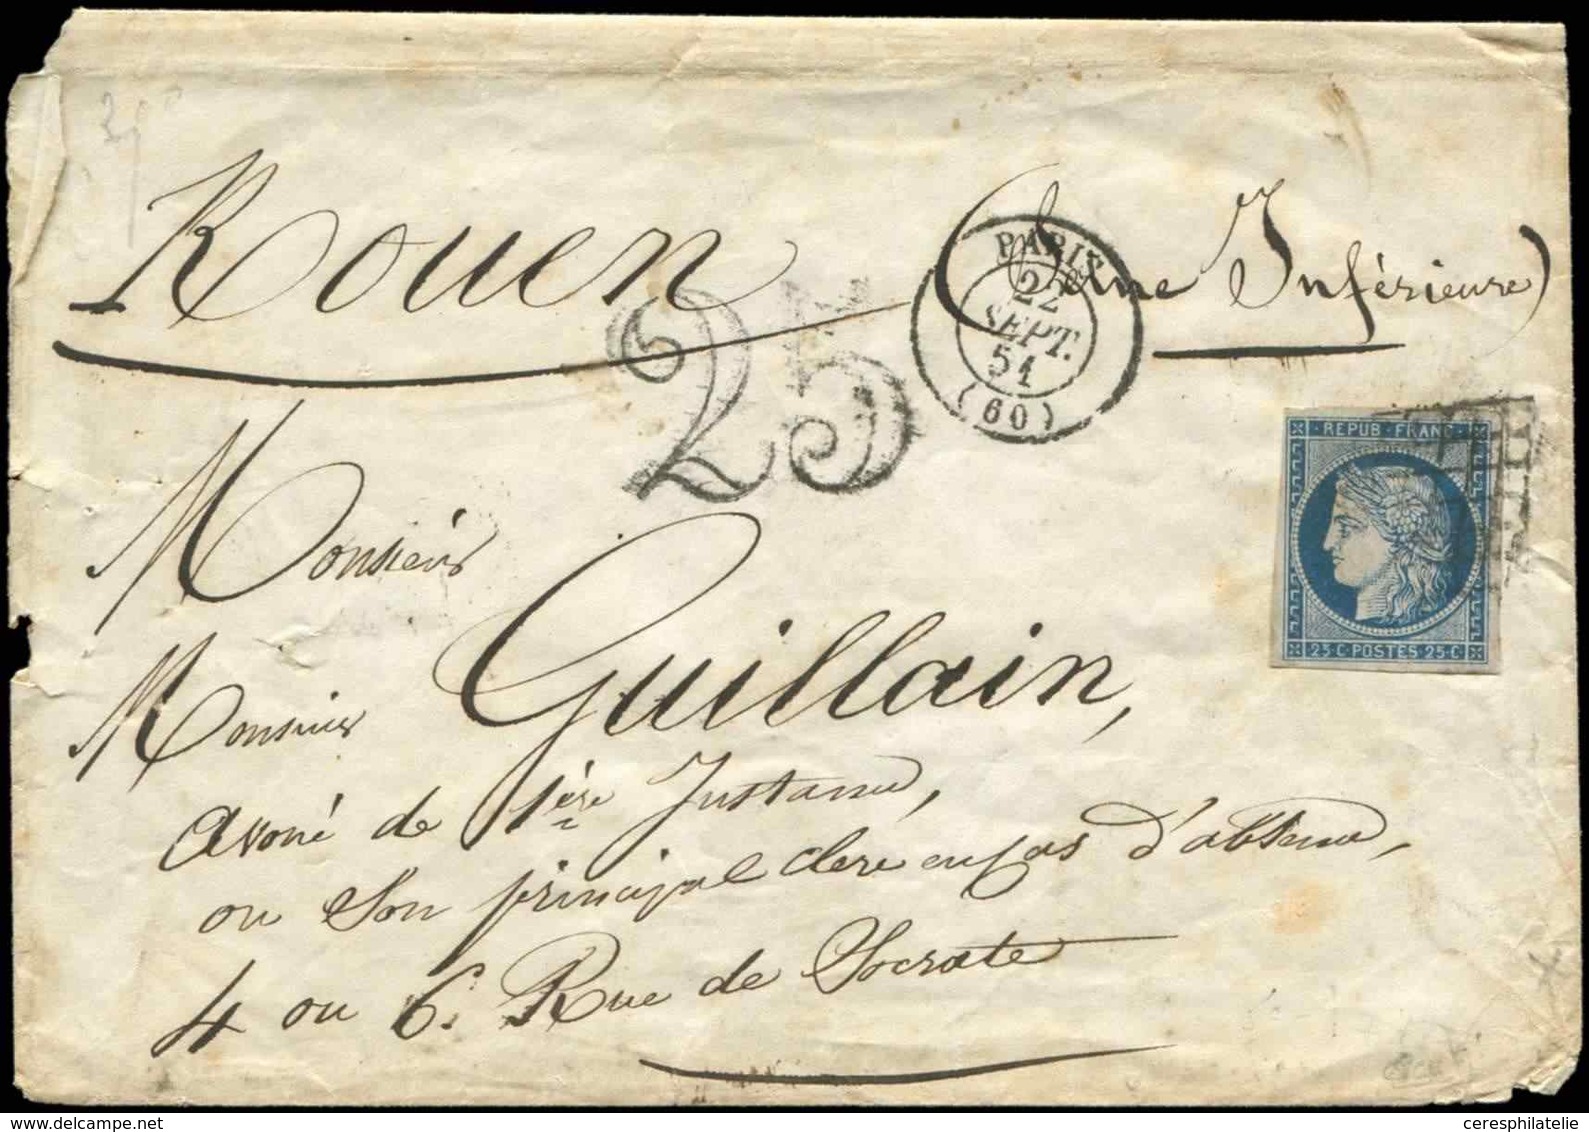 Rouen (Seine Inférieure)
PARIS
22
SEPT.
51
(60)
25
REPUB. FRANC.
25 C. POSTES 25 C.
Monsieur
Monsieur Guillain,
avoué de 1ère Instance,
ou son principal clerc en cas d'absence,
4 ou 6. Rue de Socrate
www.delcampe.net
ceresphilatelie